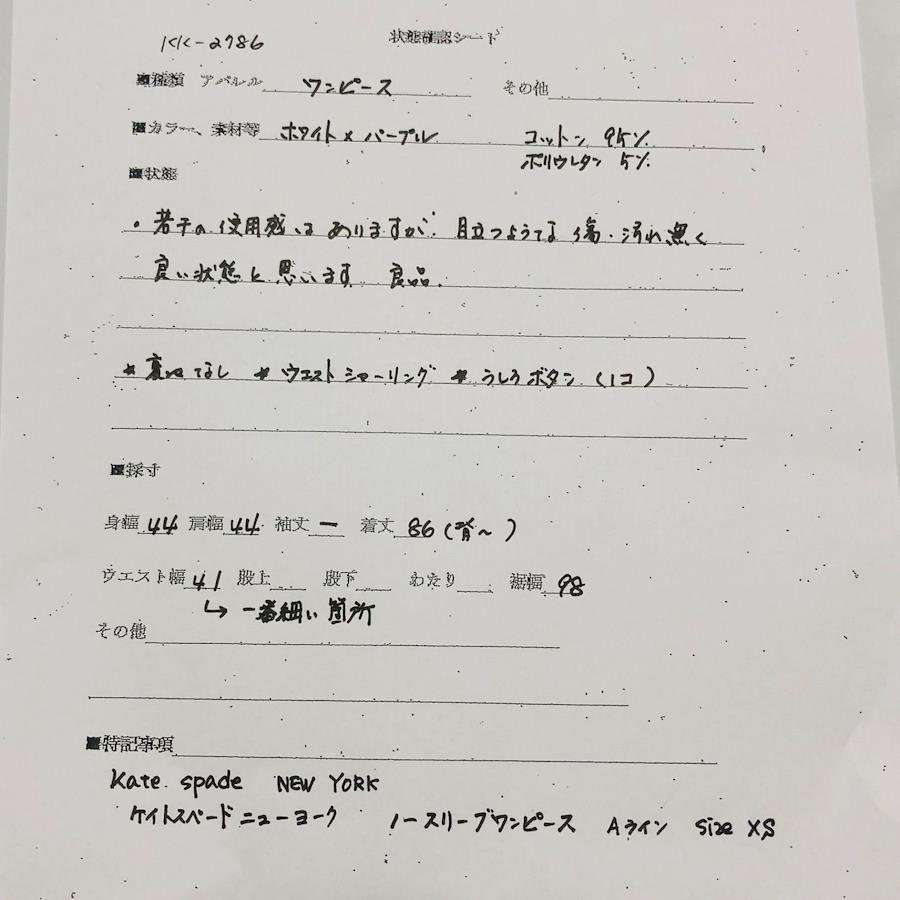 KK-2786
状態確認シート
■種類 アパレル ワンピース その他
■カラー、素材等 ホワイト×パープル コットン 95%
ポリウレタン 5%
■状態
・若干の使用感はありますが、目立つような傷・汚れ無く
良い状態と思います 良品.
*裏地なし *ウエストシャーリング *うしろボタン(1コ)
■採寸
身幅 44 肩幅 44 袖丈 ー 着丈 86(背~)
ウエスト幅 41 股上 股下 わたり 裾幅 98
↳一番細い箇所
その他
■特記事項
Kate spade NEW YORK
ケイトスペードニューヨーク ノースリーブワンピース Aライン size XS